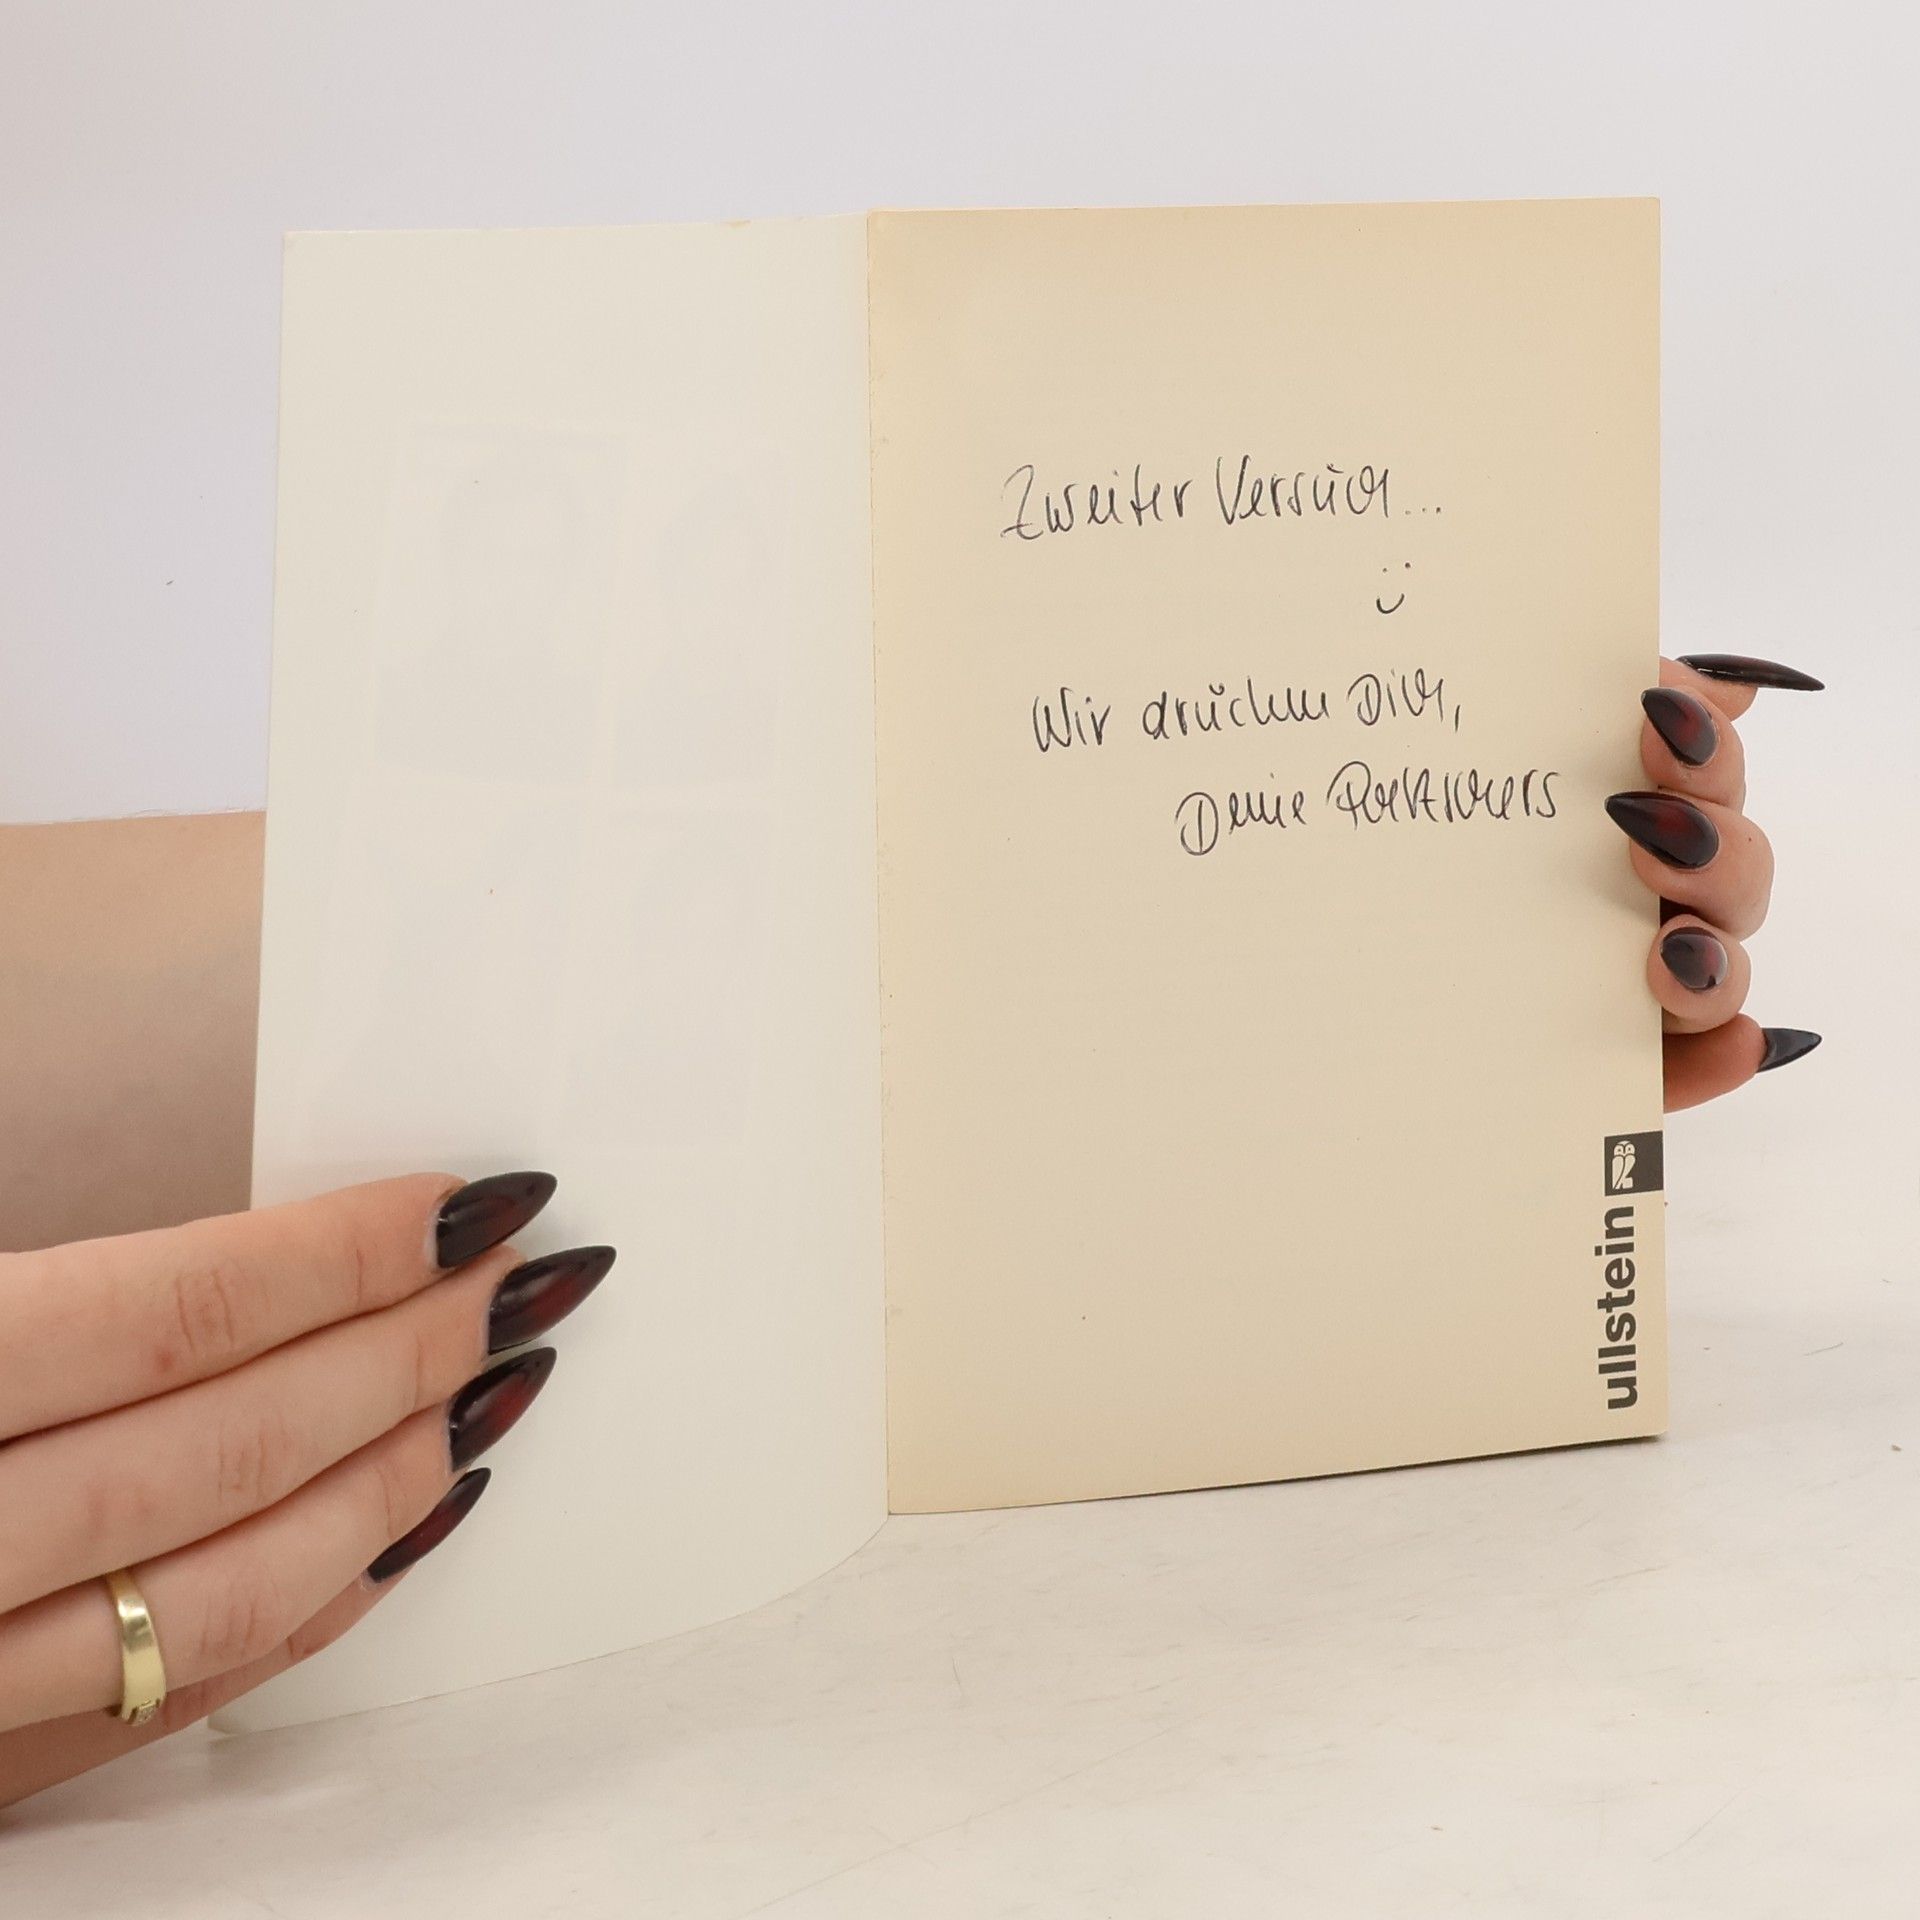 Zweiter Versuch...
Wir drücken Dich,
Deine
ullstein